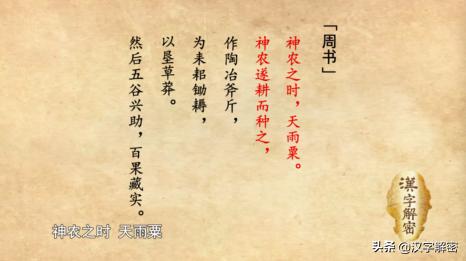 「周书」
神农之时，天雨粟。
神农遂耕而种之，
作陶冶斧斤，
为耒耜锄耨，
以垦草莽。
然后五谷兴助，百果藏实。
神农之时 天雨粟
漢字解密
头条@汉字解密